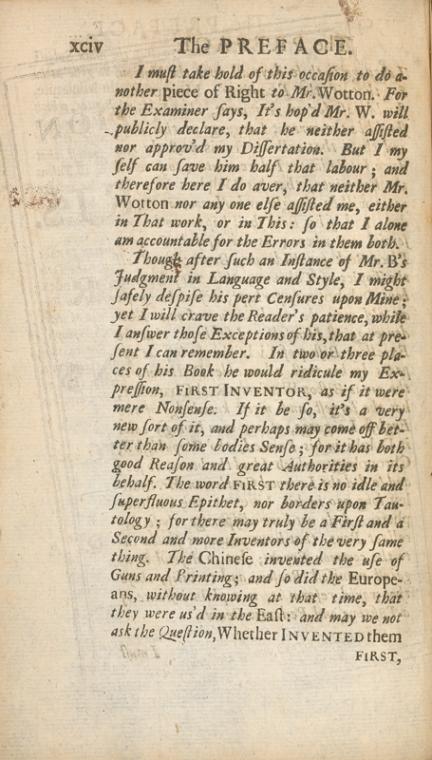 xciv The PREFACE.
I muſt take hold of this occaſion to do a-
nother piece of Right to Mr. Wotton. For
the Examiner ſays, It's hop'd Mr. W. will
publicly declare, that he neither aſſiſted
nor approv'd my Diſſertation. But I my
ſelf can ſave him half that labour; and
therefore here I do aver, that neither Mr.
Wotton nor any one elſe aſſiſted me, either
in That work, or in This: ſo that I alone
am accountable for the Errors in them both.
Though after ſuch an Inſtance of Mr. B's
Judgment in Language and Style, I might
ſafely deſpiſe his pert Cenſures upon Mine;
yet I will crave the Reader's patience, while
I anſwer thoſe Exceptions of his, that at pre-
ſent I can remember. In two or three pla-
ces of his Book he would ridicule my Ex-
preſſion, FIRST INVENTOR, as if it were
mere Nonſenſe. If it be ſo, it's a very
new ſort of it, and perhaps may come off bet-
ter than ſome bodies Senſe; for it has both
good Reaſon and great Authorities in its
behalf. The word FIRST there is no idle and
ſuperfluous Epithet, nor borders upon Tau-
tology; for there may truly be a Firſt and a
Second and more Inventors of the very ſame
thing. The Chineſe invented the uſe of
Guns and Printing; and ſo did the Europe-
ans, without knowing at that time, that
they were us'd in the Eaſt: and may we not
ask the Queſtion, Whether INVENTED them
FIRST,